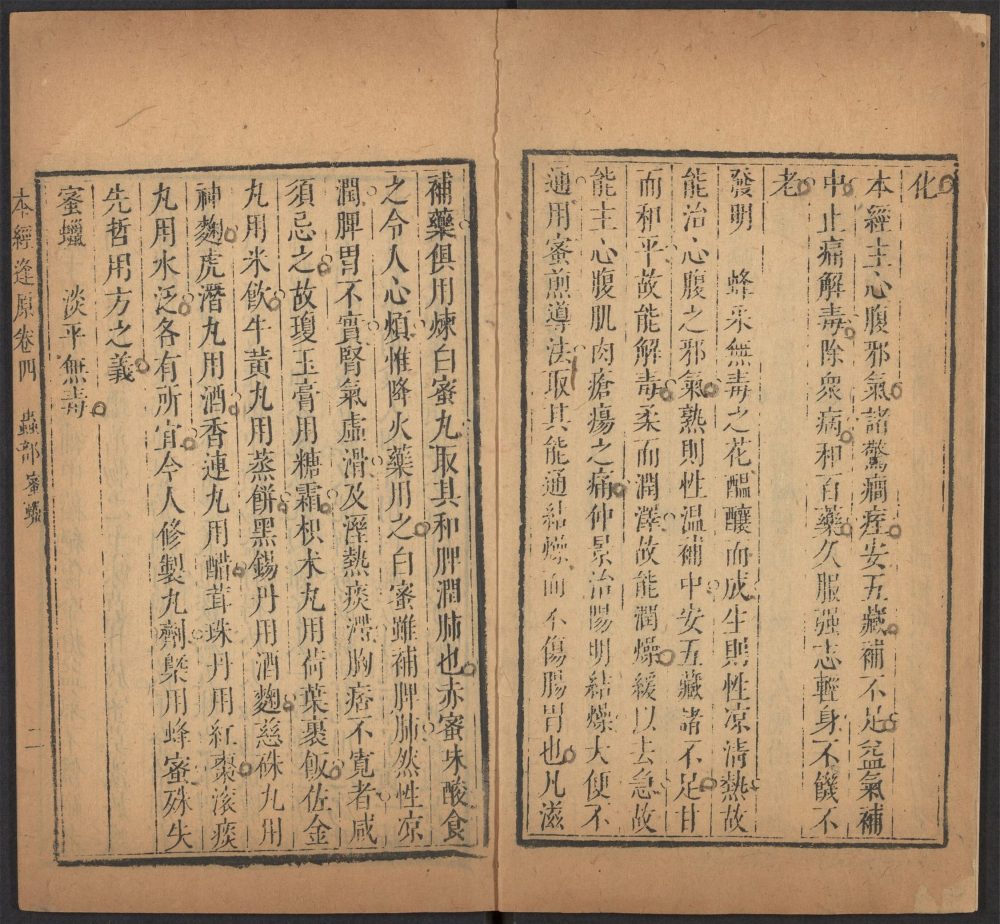 化
本經主心腹邪氣諸驚癇痓安五藏補不足益氣補
中止痛解毒除衆病和百藥久服强志輕身不饑不
老
發明　蜂采無毒之花醞釀而成生則性凉清熱故
能治心腹之邪氣熟則性温補中安五藏諸不足甘
而和平故能解毒柔而潤澤故能潤燥緩以去急故
能主心腹肌肉瘡瘍之痛仲景治陽明結燥大便不
通用蜜煎導法取其能通結燥而不傷腸胃也凡滋
補藥俱用煉白蜜丸取其和脾潤肺也赤蜜味酸食
之令人心煩惟降火藥用之白蜜雖補脾肺然性凉
潤脾胃不實腎氣虛滑及溼熱痰滯胸痞不寬者咸
須忌之故瓊玉膏用糖霜枳术丸用荷葉裹飯佐金
丸用米飮牛黃丸用蒸餅黑錫丹用酒麴慈硃丸用
神麴虎潛丸用酒香連丸用醋茸珠丹用紅棗滚痰
丸用水泛各有所宜今人修製丸劑槩用蜂蜜殊失
先哲用方之義
蜜蠟　淡平無毒
本經逢原卷四　蟲部蜜蠟　二